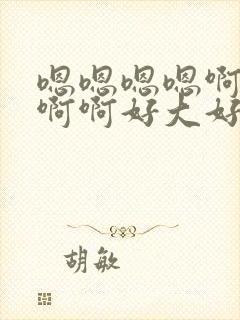 嗯嗯嗯嗯啊
啊啊好大好
胡敏